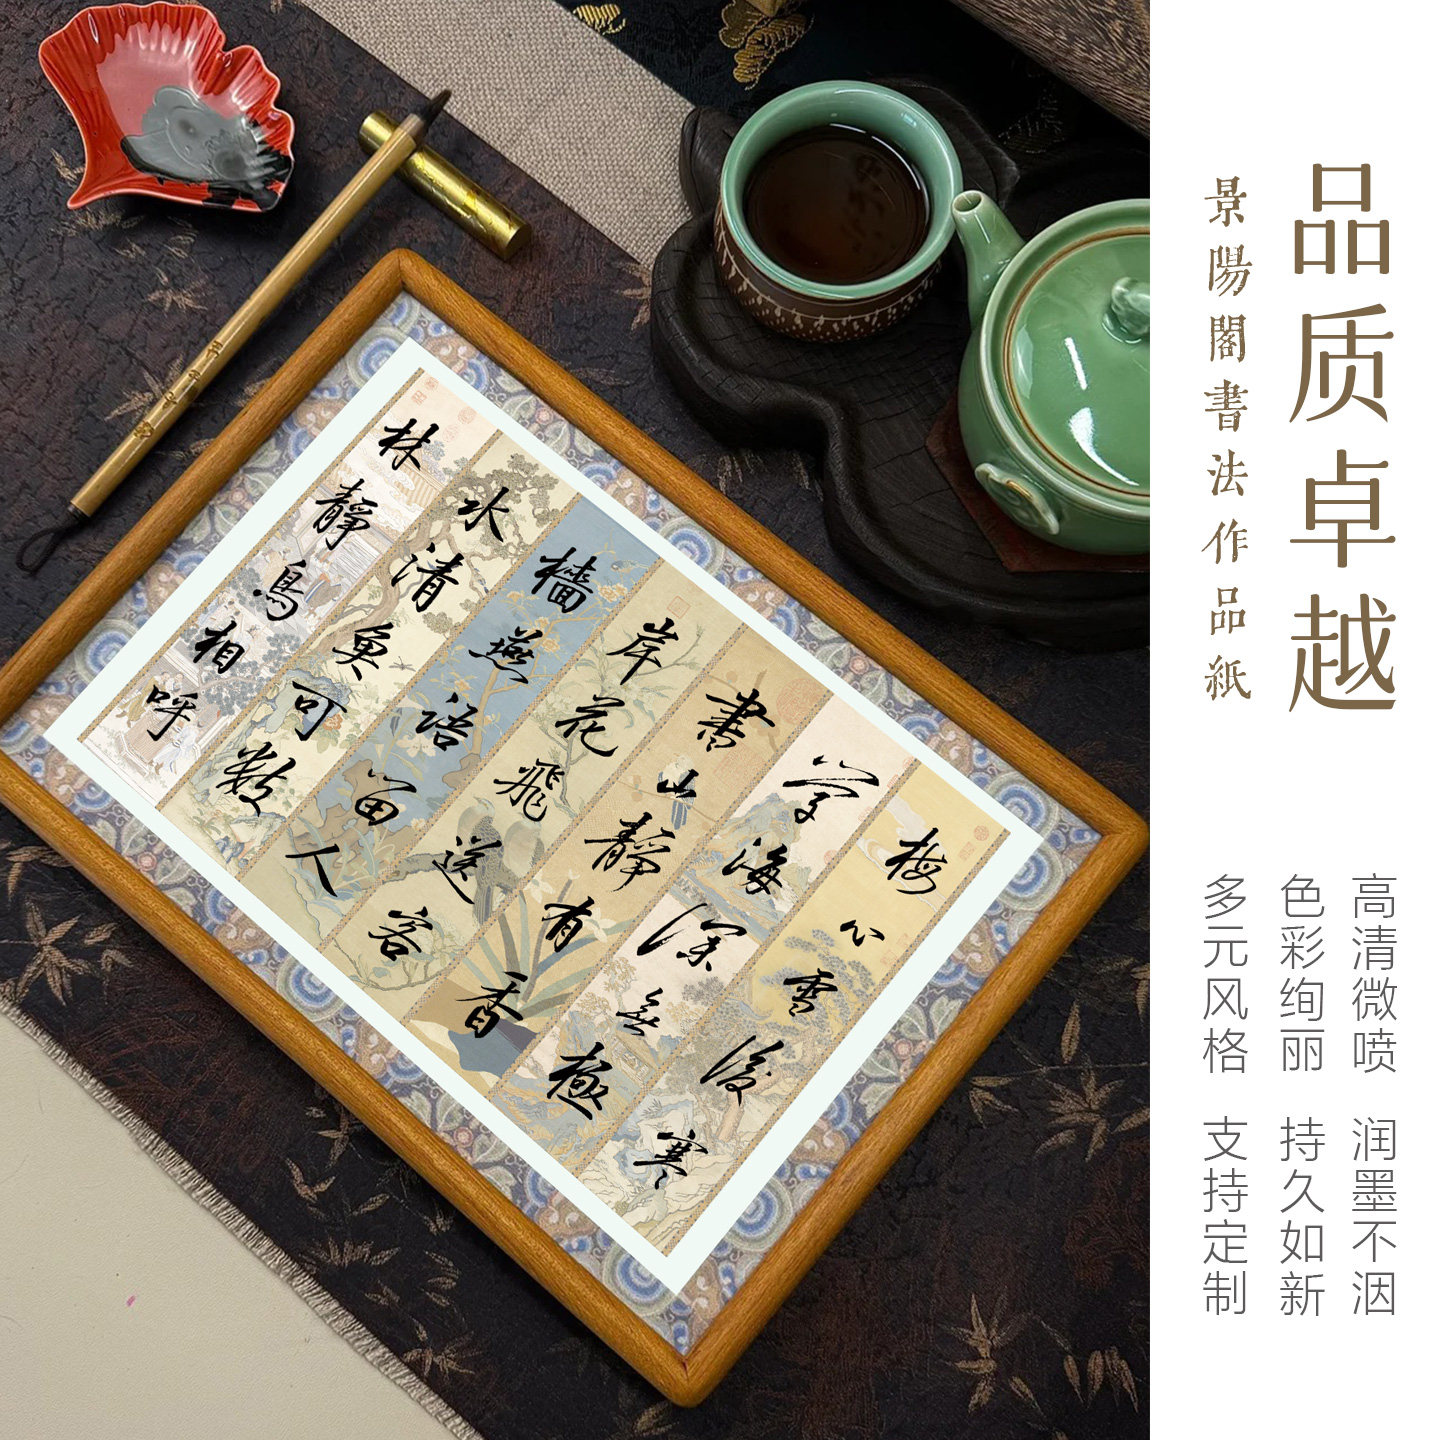 品质卓越
景陽閣書法作品紙
高清微喷 润墨不洇
色彩绚丽 持久如新
多元风格 支持定制
梅心雪後寒
學海深無極
書山靜有香
岸花飛送客
檣燕語留人
水清魚可數
林靜鳥相呼